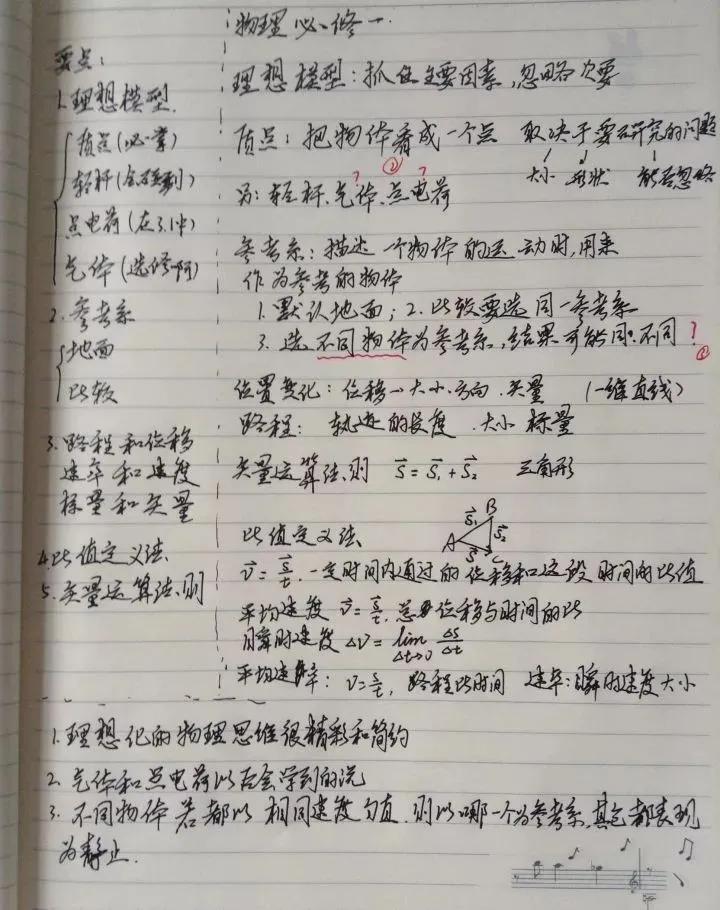 物理必修一.
要点:
1.理想模型.
质点(必掌)
轻杆(会碰到)
点电荷(在3.1中)
气体(选修啊)
2.参考系
地面
比较
3.路程和位移
速率和速度
标量和矢量
4.比值定义法.
5.矢量运算法则
理想模型:抓住主要因素,忽略次要
质点:把物体看成一个点 取决于要研究的问题
大小 形状 能否忽略
② ? ?
另:轻杆.气体.点电荷
参考系:描述一个物体的运动时,用来
作为参考的物体
1.默认地面;2.比较要选同一参考系
3.选不同物体为参考系,结果可能同.不同?
③
位置变化:位移→大小.方向.矢量 (一维直线)
路程: 轨迹的长度 .大小 标量
矢量运算法则 s⃗=s⃗₁+s⃗₂ 三角形
A B C s⃗₁ s⃗₂ s⃗
比值定义法.
v⃗=s⃗/t.一定时间内通过的位移和这段时间的比值
平均速度 v⃗=s⃗/t,总位移与时间的比
瞬时速度 Δv=lim Δt→0 Δs/Δt
平均速率:v=s/t,路程比时间 速率:瞬时速度大小
1.理想化的物理思维很精彩和简约
2.气体和点电荷以后会学到的说
3.不同物体若都以相同速度匀直.则以哪一个为参考系,其它都表现
为静止.